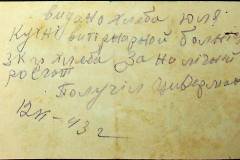 видано хлеба для
кухні ветернарной больн
3 кг хлеба за наличн
росчот
Получил
12/II-43 г